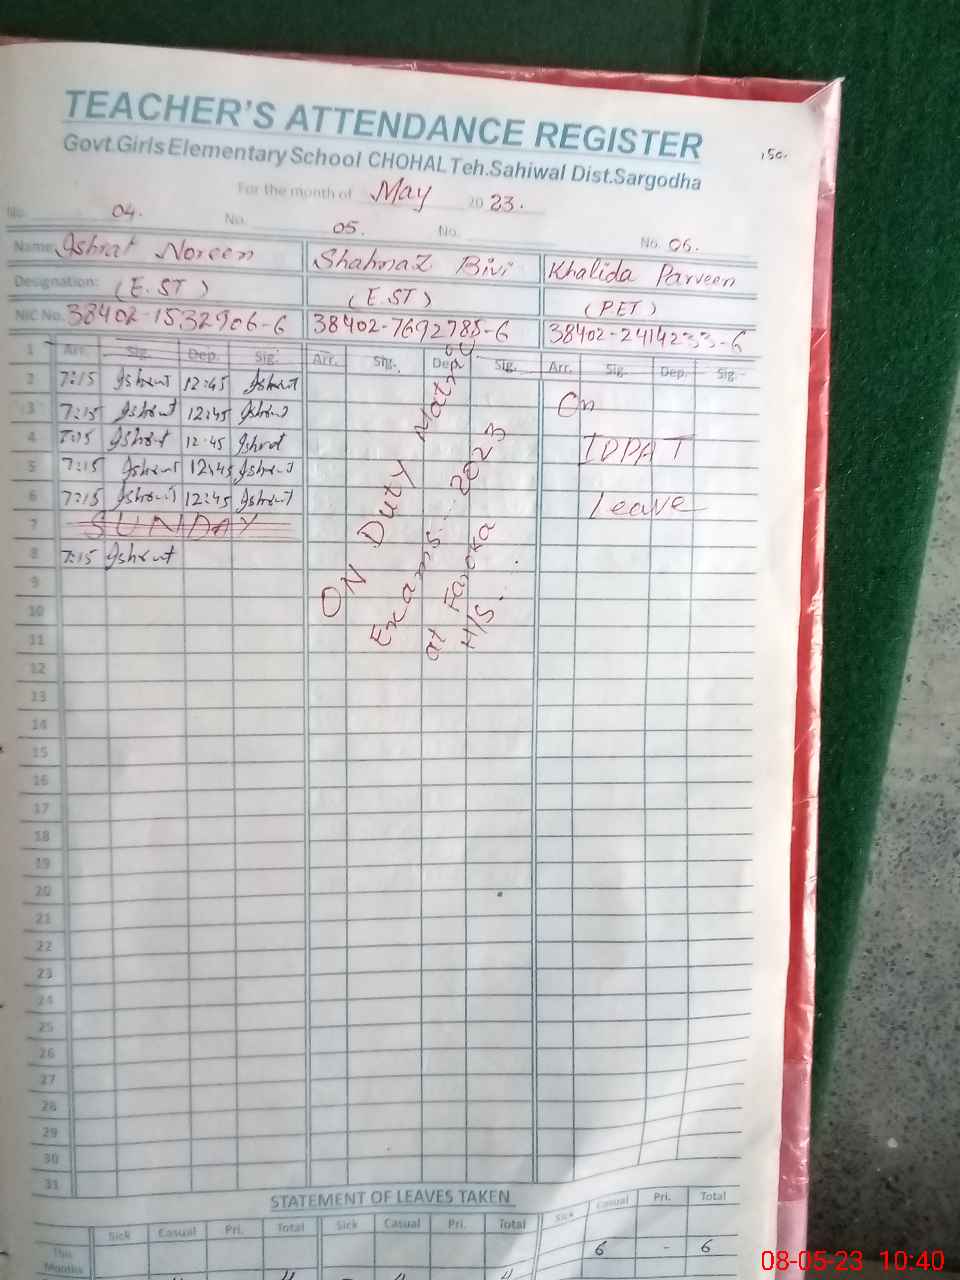 TEACHER'S ATTENDANCE REGISTER
Govt.Girls Elementary School CHOHAL Teh.Sahiwal Dist.Sargodha
For the month of May 2023.
No. 04. No. 05. No. No. 06.
Name: Ishrat Noreen Shahnaz Bivi Khalida Parveen
Designation: (E.ST) (E.ST) (PET)
NIC No. 38402-1532906-6 38402-7692785-6 38402-2414233-6
1 Arr. Sig. Dep. Sig. Arr. Sig. Dep. Sig. Arr. Sig. Dep. Sig.
2 7:15 Ishrat 12:45 Ishrat
3 7:15 Ishrat 12:45 Ishrat On
4 7:15 Ishrat 12:45 Ishrat IDPAT
5 7:15 Ishrat 12:45 Ishrat
6 7:15 Ishrat 12:45 Ishrat Leave
7 SUNDAY
8 7:15 Ishrat
ON Duty Matric
Exams... 2023
at Faroka
H/S...
9
10
11
12
13
14
15
16
17
18
19
20
21
22
23
24
25
26
27
28
29
30
31
STATEMENT OF LEAVES TAKEN
Sick Casual Pri. Total Sick Casual Pri. Total Sick Casual Pri. Total
This Months 6 - 6
08-05-23 10:40